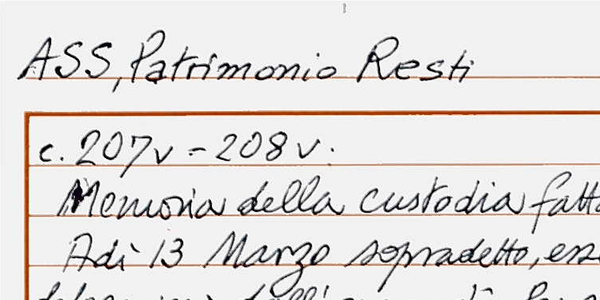 ASS, Patrimonio Resti
c. 207v - 208v.
Memoria della custodia fatt
Adì 13 Marzo sopradetto, ess
dell'